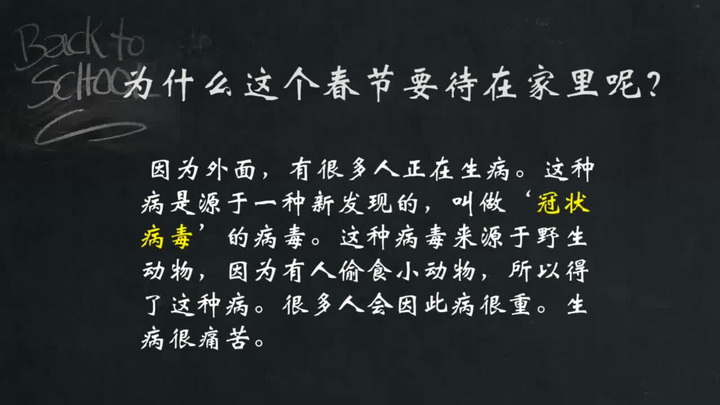 Back to
School
为什么这个春节要待在家里呢?
因为外面，有很多人正在生病。这种
病是源于一种新发现的，叫做‘冠状
病毒’的病毒。这种病毒来源于野生
动物，因为有人偷食小动物，所以得
了这种病。很多人会因此病很重。生
病很痛苦。